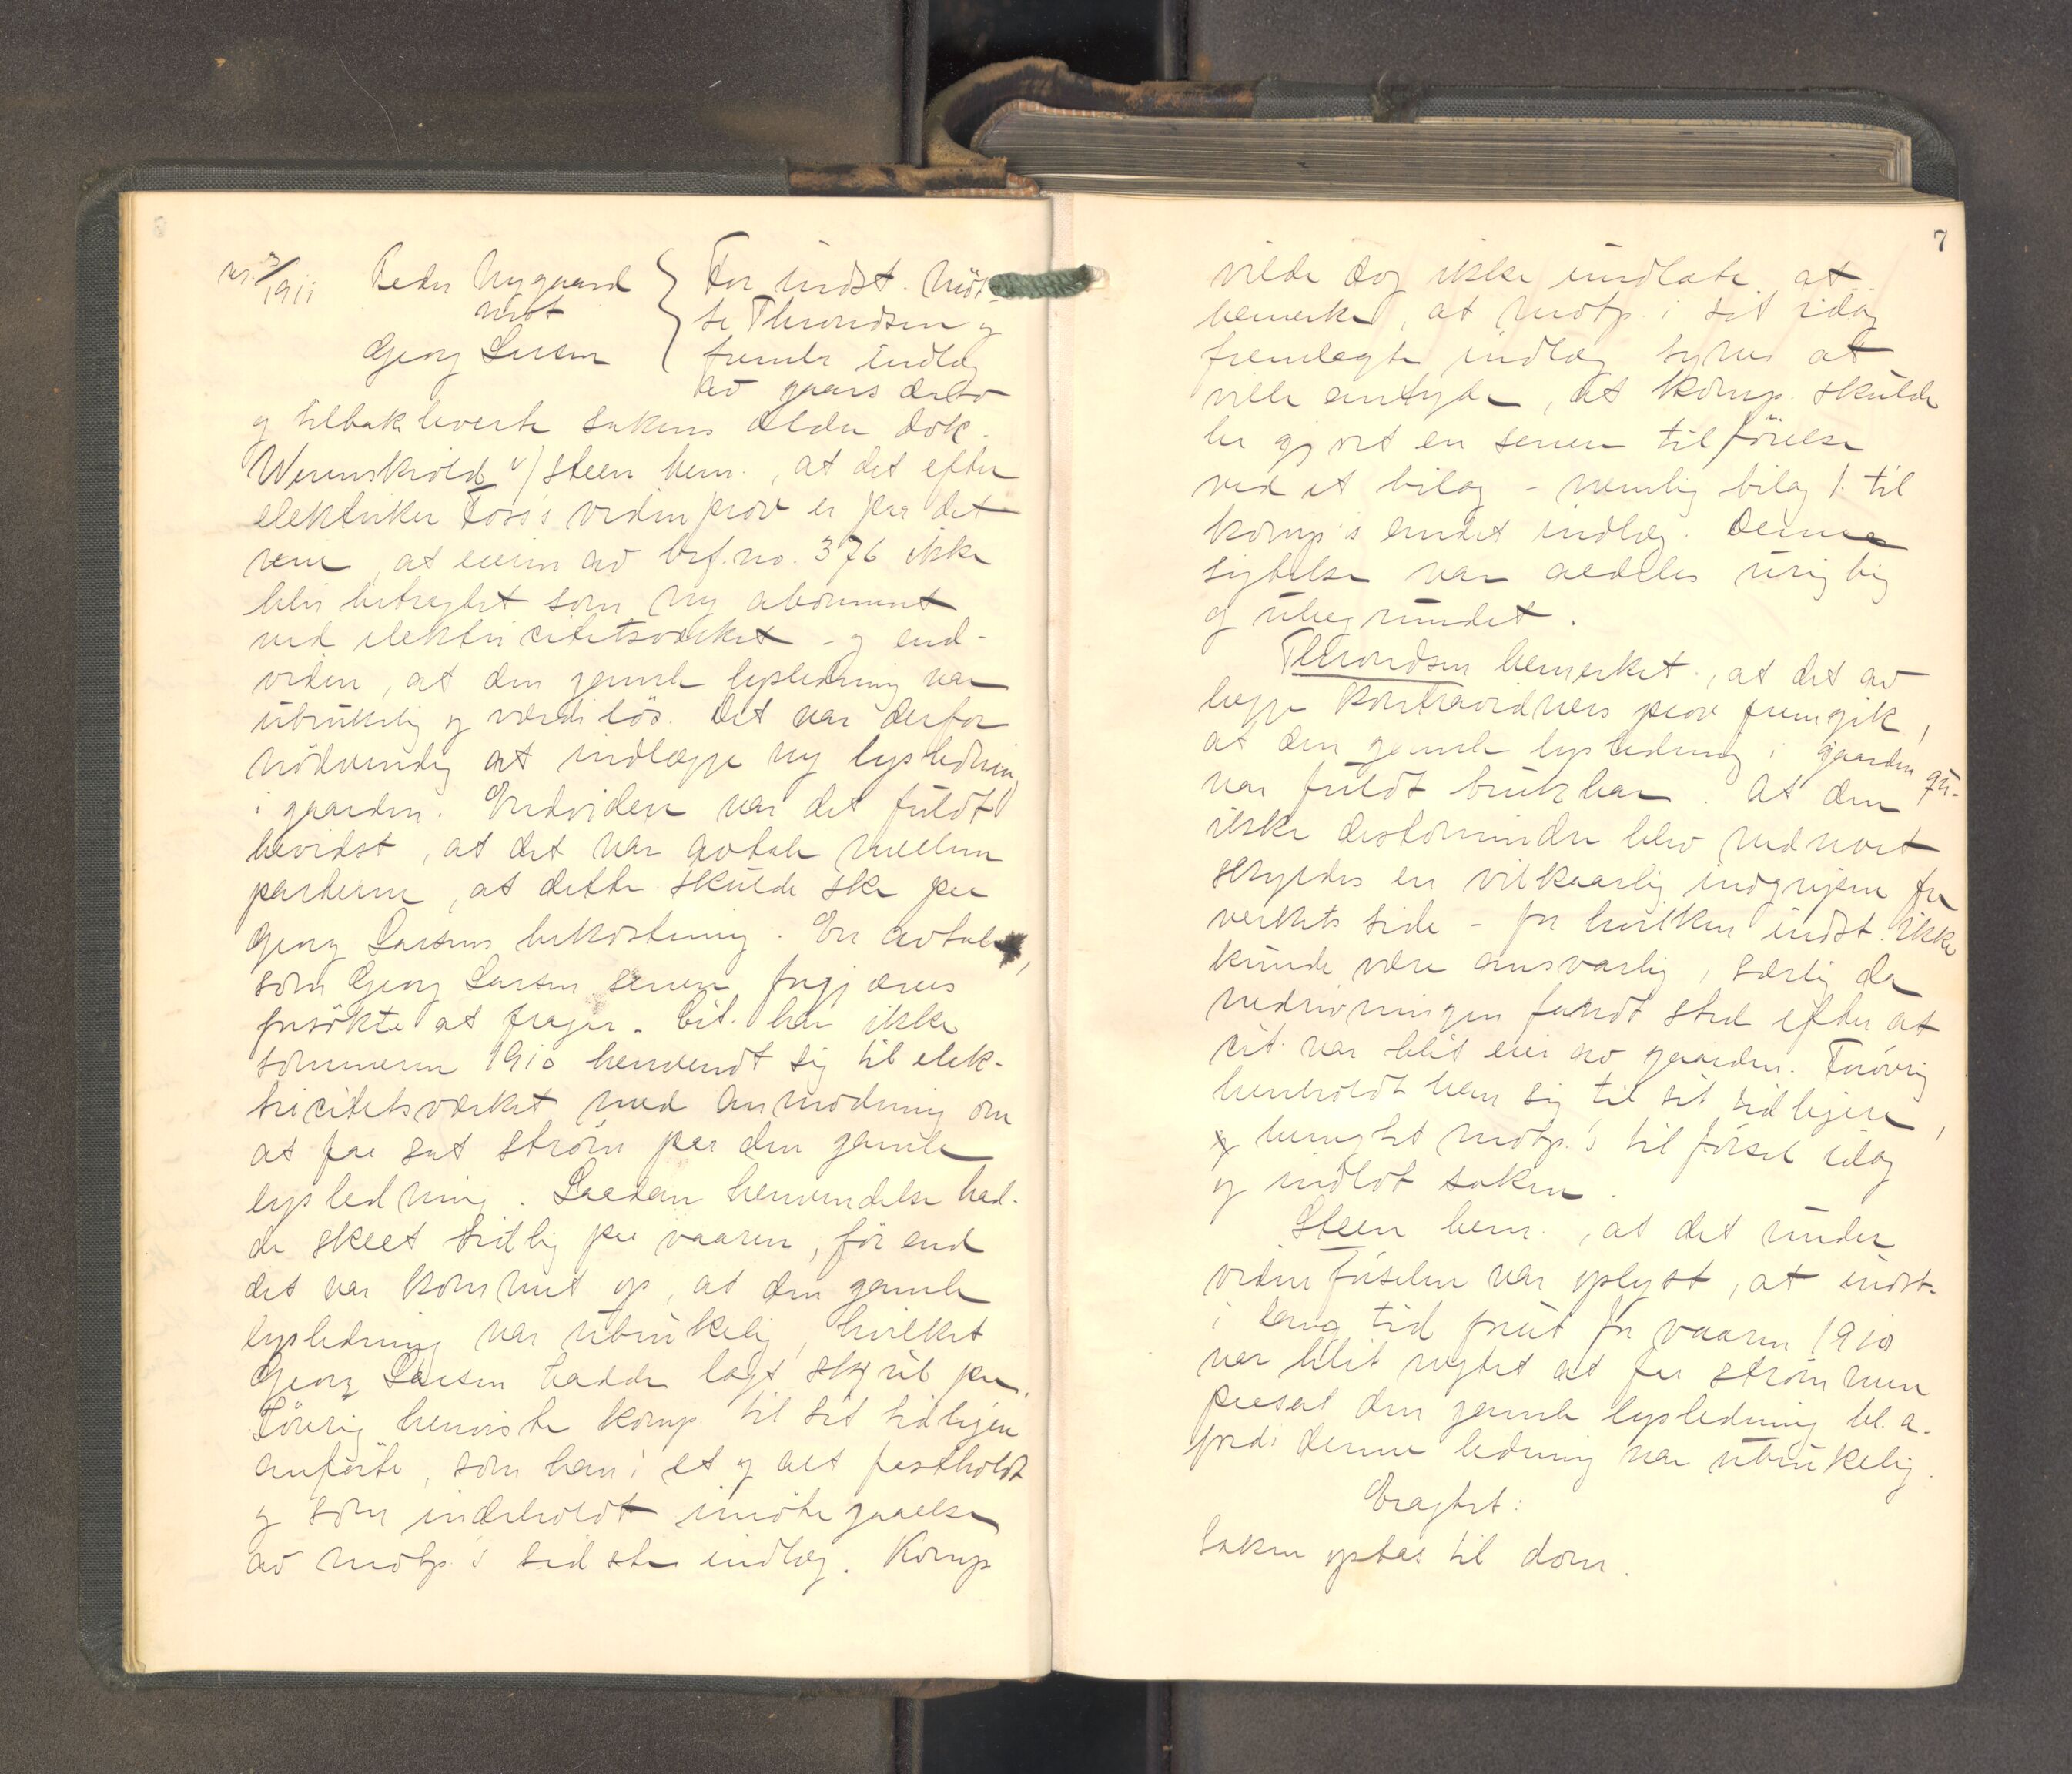 nr. 3/1911 Peder Nygaard } For indst. möt-
mot te Throndsen og
Georg Larsen fremla indlæg
av gaars dato
og tilbakleverte sakens ældre dok.
Werenskiold v/ Steen bem., at det efter
elektriker Foss's vidneprov er paa det
rene, at eieren av brf. no. 376 ikke
blir betragtet som ny abonnent
ved elektricitetsverket - og end-
videre, at den gamle lysledning var
ubrukelig og værdilös. Det var derfor
nödvendig at indlægge ny lysledning
i gaarden. Endvidere var det fuldt
bevidst, at det var avtale mellem
parterne, at dette skulde ske paa
Georg Larsens bekostning. En avtale,
som Georg Larsen senere forgjæves
forsökte at fragaa. Cit. har ikke
sommeren 1910 henvendt sig til elek-
tricitetsværket med anmodning om
at faa sat ström paa den gamle
lysledning. Saadan henvendelse had-
de skeet tidlig paa vaaren, för end
det var kommet op, at den gamle
lysledning var ubrukelig, hvilket
Georg Larsen hadde lagt skjul paa.
Forövrig henviste komp. til sit tidligere
anförte, som han i et og alt fastholdt
og som indeholdt imötegaaelse
av motp.'s sidste indlæg. Komp.
7
vilde dog ikke undlate at
bemerke, at motp. i sit idag
fremlagte indlæg synes at
ville antyde, at komp. skulde
ha gjort en senere tilförelse
ved et bilag - nemlig bilag 1 til
komp's andet indlæg. Denne
sigtelse var aldeles urigtig
og ubegrundet.
Throndsen bemerket, at det av
begge kontravidners prov fremgik,
at den gamle lysledning i gaarden
var fuldt brukbar. At den
ikke destomindre blev nedrevet
skyldes en vilkaarlig indgripen fra
verkets side - for hvilken indst. ikke
kunde være ansvarlig, særlig da
nedrivningen fandt sted efter at
cit. var blit eier av gaarden. Forövrig
henholdt han sig til sit tidligere,
benegtet motp.'s tilförsel idag
og indlot saken.
Steen bem., at det under
vidneförselen var oplyst, at indst.
i lang tid forut for vaaren 1910
var blit negtet at faa strömmen
paasat den gamle lysledning bl. a.
fordi denne ledning var ubrukelig.
Eragtet:
Saken optas til dom.